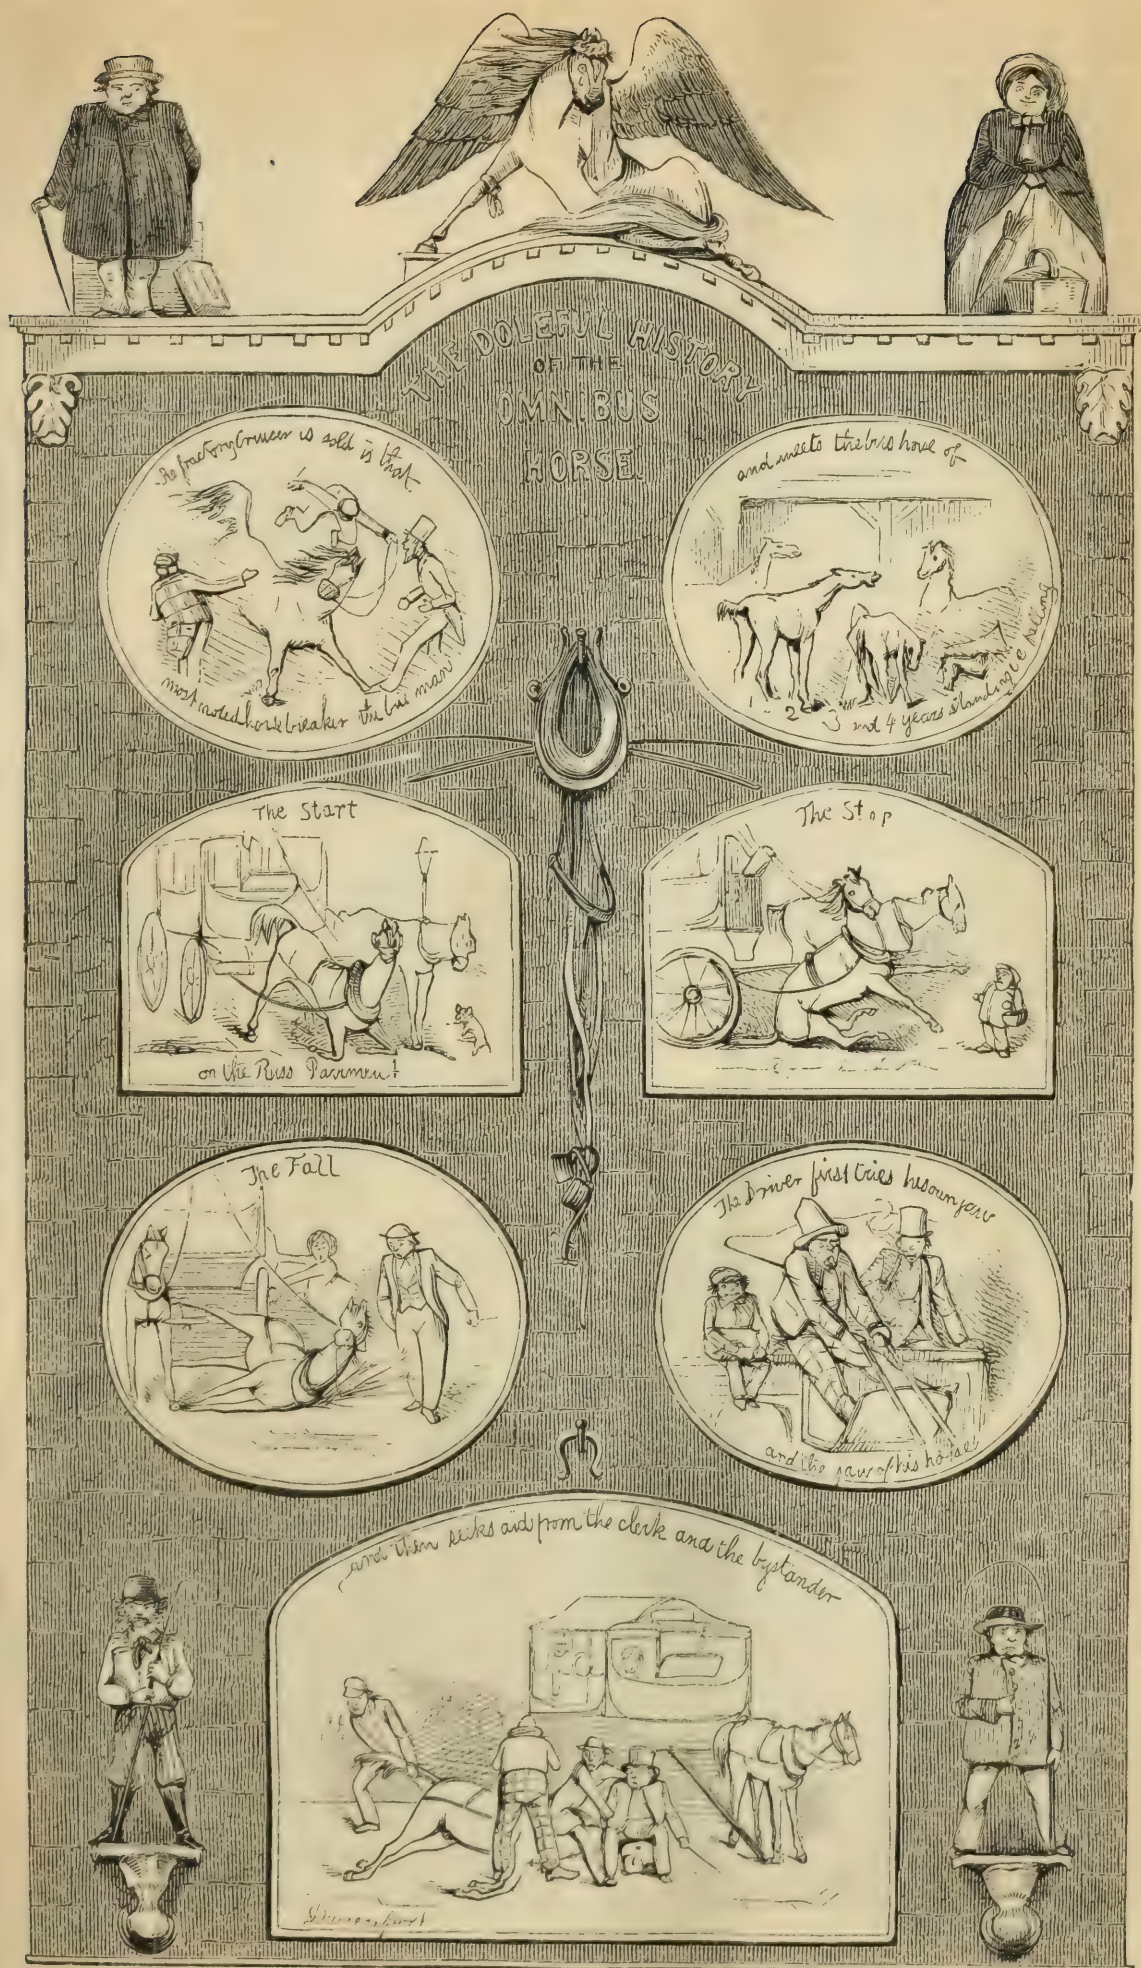 THE DOLEFUL HISTORY
OF THE
OMNIBUS
HORSE.
Refractory Cruiser is sold is that
most noted horse breaker the bus man
and meets the bus horse of
1 2 3 and 4 years standing
The Start
on the Russ Pavement
The Stop
The Fall
The Driver first tries his own jaw
and the jaw of his horse
and then seeks aid from the clerk and the bystander